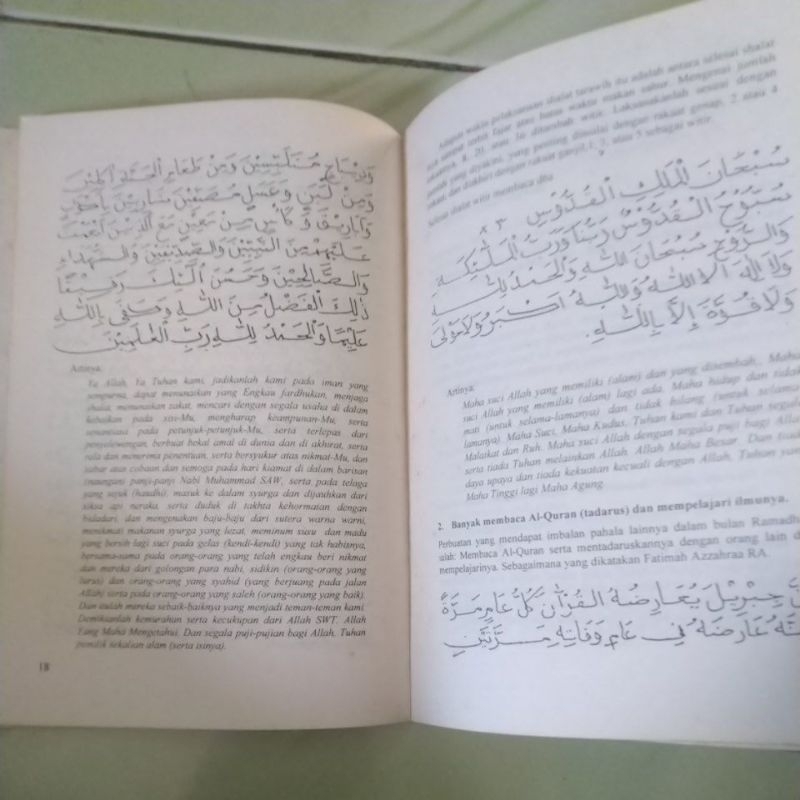 وَدِيبَاجٍ مُتَلَبِّسِيْنَ وَمِنْ طَعَامِ الْجَنَّةِ آكِلِيْنَ
وَمِنْ لَبَنٍ وَعَسَلٍ مُصَفَّيْنِ شَارِبِيْنَ بِأَكْوَابٍ
وَأَبَارِيْقَ وَكَأْسٍ مِنْ مَعِيْنٍ مَعَ الَّذِيْنَ أَنْعَمْتَ
عَلَيْهِمْ مِنَ النَّبِيِّيْنَ وَالصِّدِّيْقِيْنَ وَالشُّهَدَاءِ
وَالصَّالِحِيْنَ وَحَسُنَ أُولٰئِكَ رَفِيْقًا
ذٰلِكَ الْفَضْلُ مِنَ اللّٰهِ وَكَفَى بِاللّٰهِ
عَلِيْمًا وَالْحَمْدُ لِلّٰهِ رَبِّ الْعَالَمِيْنَ
Artinya:
Ya Allah, Ya Tuhan kami, jadikanlah kami pada iman yang
sempurna, dapat menunaikan yang Engkau fardhukan, menjaga
shalat, menunaikan zakat, mencari dengan segala usaha di dalam
kebaikan pada sisi-Mu, mengharap keampunan-Mu, serta
senantiasa pada petunjuk-petunjuk-Mu, serta terlepas dari
penyelewengan, berbuat bekal amal di dunia dan di akhirat, serta
rela dan menerima penentuan, serta bersyukur atas nikmat-Mu, dan
sabar atas cobaan dan semoga pada hari kiamat di dalam barisan
(naungan) panji-panji Nabi Muhammad SAW, serta pada telaga
yang sejuk (haudhi), masuk ke dalam syurga dan dijauhkan dari
siksa api neraka, serta duduk di takhta kehormatan dengan
bidadari, dan mengenakan baju-baju dari sutera warna warni,
menikmati makanan syurga yang lezat, meminum susu dan madu
yang bersih lagi suci pada gelas (kendi-kendi) yang tak habisnya,
bersama-sama pada orang-orang yang telah engkau beri nikmat
dan mereka dari golongan para nabi, sidikin (orang-orang yang
lurus) dan orang-orang yang syahid (yang berjuang pada jalan
Allah) serta pada orang-orang yang saleh (orang-orang yang baik).
Dan itulah mereka sebaik-baiknya yang menjadi teman-teman kami.
Demikanlah kemurahan serta kecukupan dari Allah SWT. Allah
Yang Maha Mengetahui. Dan segala puji-pujian bagi Allah. Tuhan
pemilik sekalian alam (serta isinya).
18
Adapun waktu pelaksanaan shalat tarawih itu adalah antara selesai shalat
isya sampai terbit fajar atau batas waktu makan sahur. Mengenai jumlah
rakaatnya, 8, 20, atau 36 ditambah witir. Laksanakanlah sesuai dengan
jumlah yang diyakini, yang penting dimulai dengan rakaat genap, 2 atau 4
rakaat, dan diakhiri dengan rakaat ganjil 1, 3, atau 5 sebagai witir.
Selesai shalat witir membaca doa
سُبْحَانَ الْمَلِكِ الْقُدُّوْسِ ×٣
سُبُّوْحٌ الْقُدُّوْسُ رَبُّنَا وَرَبُّ الْمَلٰئِكَةِ
وَالرُّوْحِ سُبْحَانَ اللّٰهِ وَالْحَمْدُ لِلّٰهِ
وَلَا إِلٰهَ اِلَّا اللّٰهُ وَاللّٰهُ اَكْبَرُ وَلَا حَوْلَ
وَلَا قُوَّةَ إِلَّا بِاللّٰهِ.
Artinya:
Maha suci Allah yang memiliki (alam) dan yang disembah. Maha
suci Allah yang memiliki (alam) lagi ada. Maha hidup dan tidak
mati (untuk selama-lamanya) dan tidak hilang (untuk selama
lamanya). Maha Suci, Maha Kudus, Tuhan kami dan Tuhan segala
Malaikat dan Ruh. Maha suci Allah dengan segala puji bagi Allah
serta tiada Tuhan melainkan Allah. Allah Maha Besar. Dan tiada
daya upaya dan tiada kekuatan kecuali dengan Allah, Tuhan yang
Maha Tinggi lagi Maha Agung.
2. Banyak membaca Al-Quran (tadarus) dan mempelajari ilmunya.
Perbuatan yang mendapat imbalan pahala lainnya dalam bulan Ramadh
Membaca Al-Quran serta mentadaruskannya dengan orang lain d
mempelajarinya. Sebagaimana yang dikatakan Fatimah Azzahraa RA.
جِبْرِيْلَ يُعَارِضُهُ الْقُرْآنَ كُلَّ عَامٍ مَرَّةً
عَارَضَهُ فِي عَامِ وَفَاتِهِ مَرَّتَيْنِ